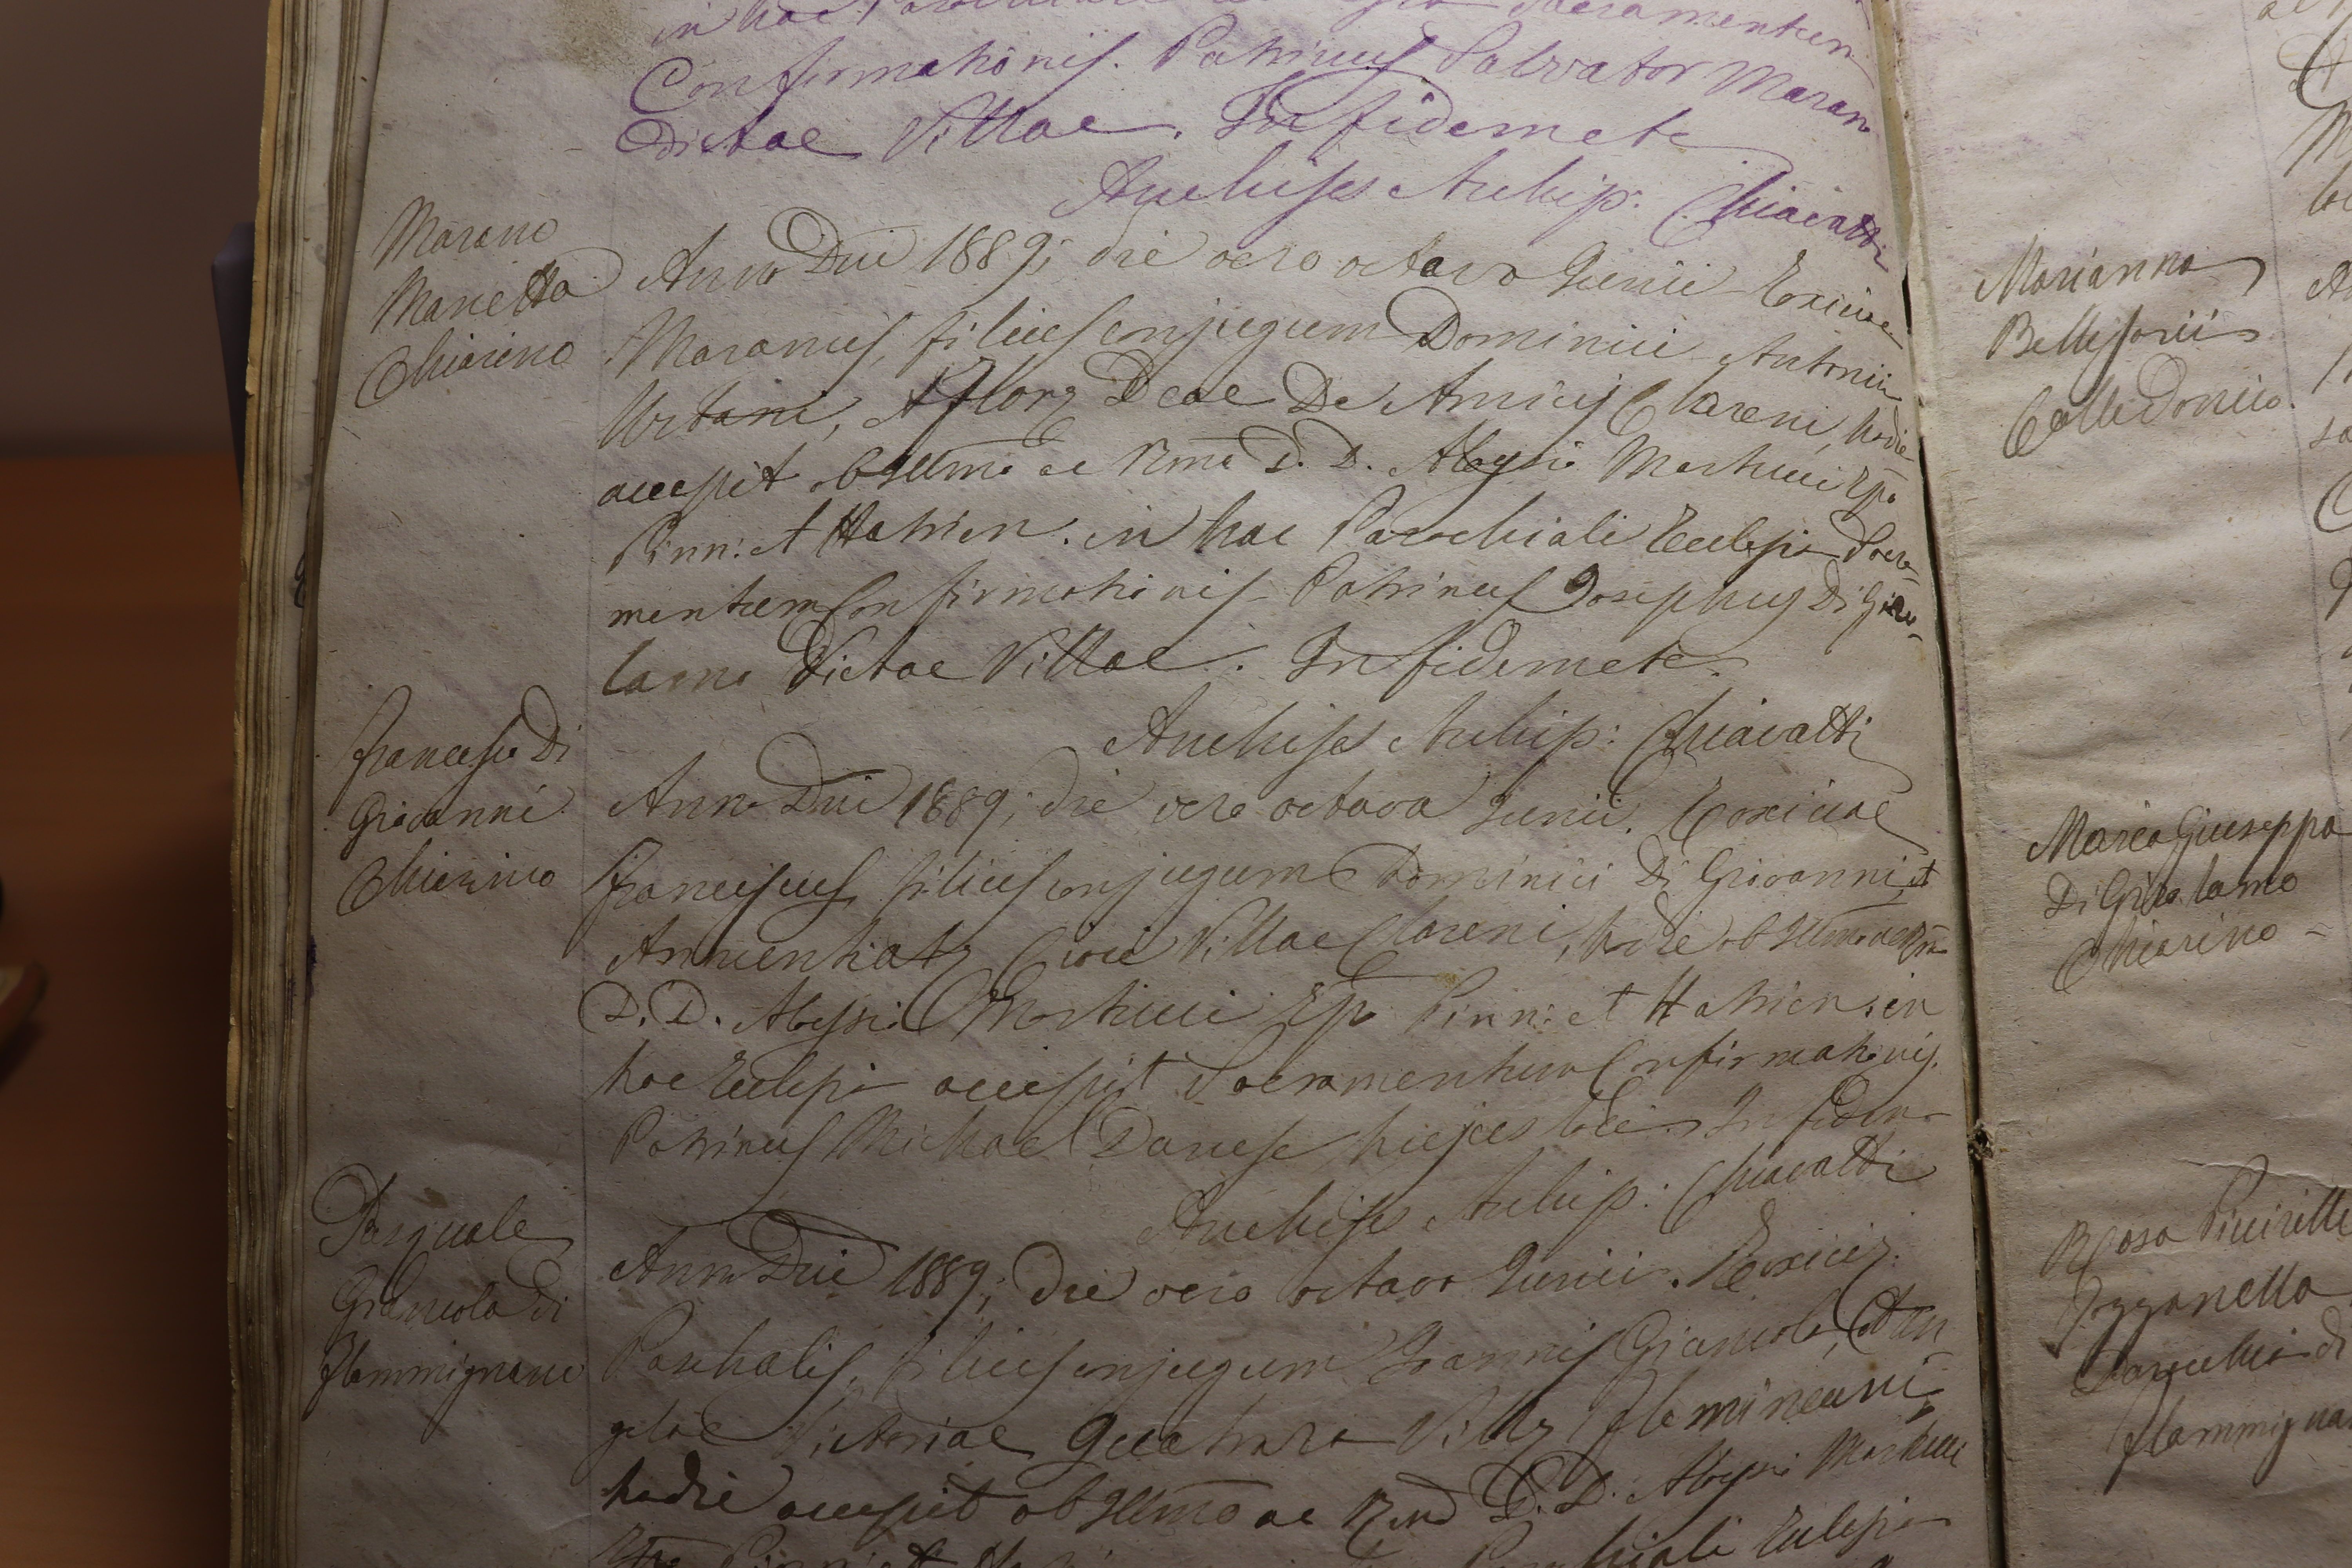 in hac Sacramentum
Confirmationis. Patrinus Salvator Maran
dictae Villae. In fidem etc
Anchises Archip: Chiavatti
Marano
Marietta
Chiarino
Anno Dni 1889; die vero octava Junii Toxiciae
Maranus, filius conjugum Dominici Antonii
Urbani, et Deae De Amicis Clareni, hodie
accepit ab Illmo ac Rmo D. D. Aloysio Martucci Epo
Pinn: et Hatrien. in hac Parochiali Ecclesia Sacra-
mentum Confirmationis. Patrinus Josephus Di Giro-
lamo dictae Villae. In fidem etc.
Anchises Archip: Chiavatti
Francesco Di
Giovanni
Chiarino
Anno Dni 1889; die vero octava Junii. Toxiciae
Franciscus filius conjugum Dominici Di Giovanni, et
Annuntiatae Villae Clareni, hodie ab Illmo ac Rmo
D. D. Aloysio Martucci Epo Pinn: et Hatrien. in
hac Ecclesia accepit Sacramentum Confirmationis.
Patrinus Michael Danese hujus loci. In fidem
Anchises Archip: Chiavatti
Pasquale
Giancola di
Flammignano
Anno Dni 1889; die vero octava Junii. Toxiciae.
Paschalis, filius conjugum Joannis Giancola, et An-
gelae Victoriae Quatraro Villae Flamineani,
hodie accepit ab Illmo ac Rmo D. D. Aloysio Martucci
Epo Pinn: et Parochiali Ecclesia
Marianna
Bellisarii
Colledonico
Maria Giuseppa
Di Girolamo
Chiarino
Rosa Piccirilli
Azzanella
Parrocchia di
Flammigna